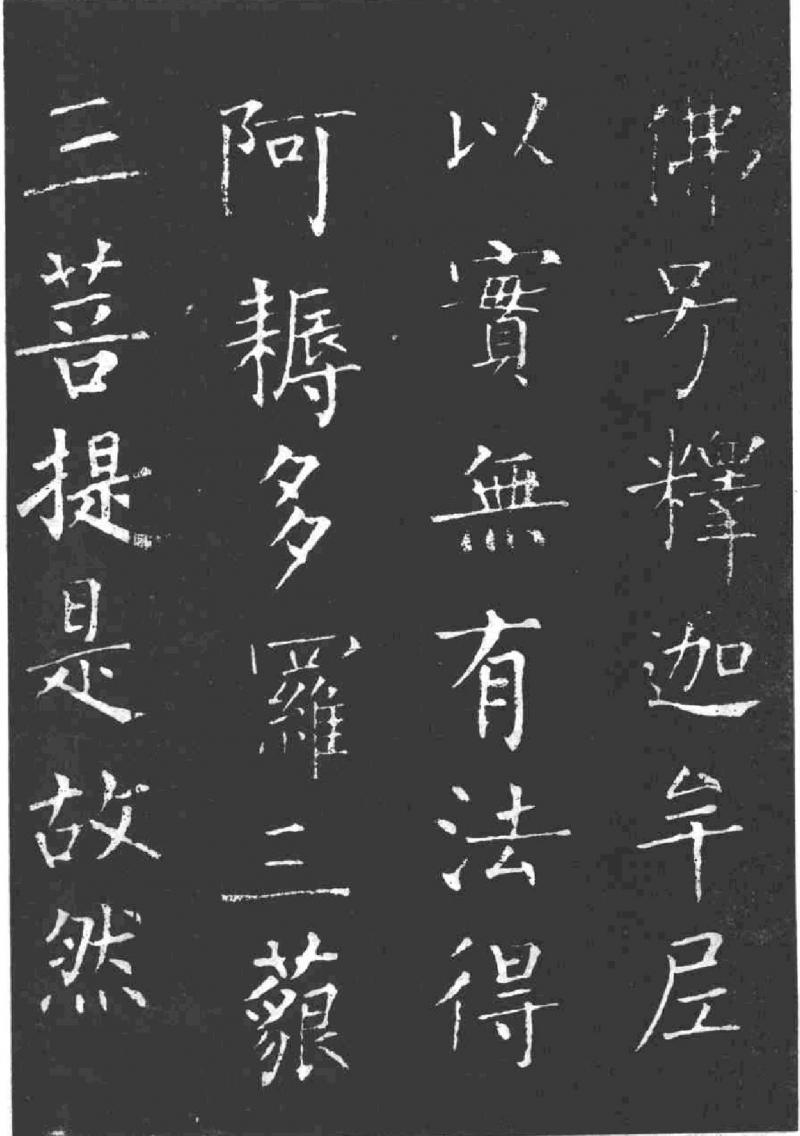 佛号釋迦牟尼
以實無有法得
阿耨多羅三藐
三菩提是故然